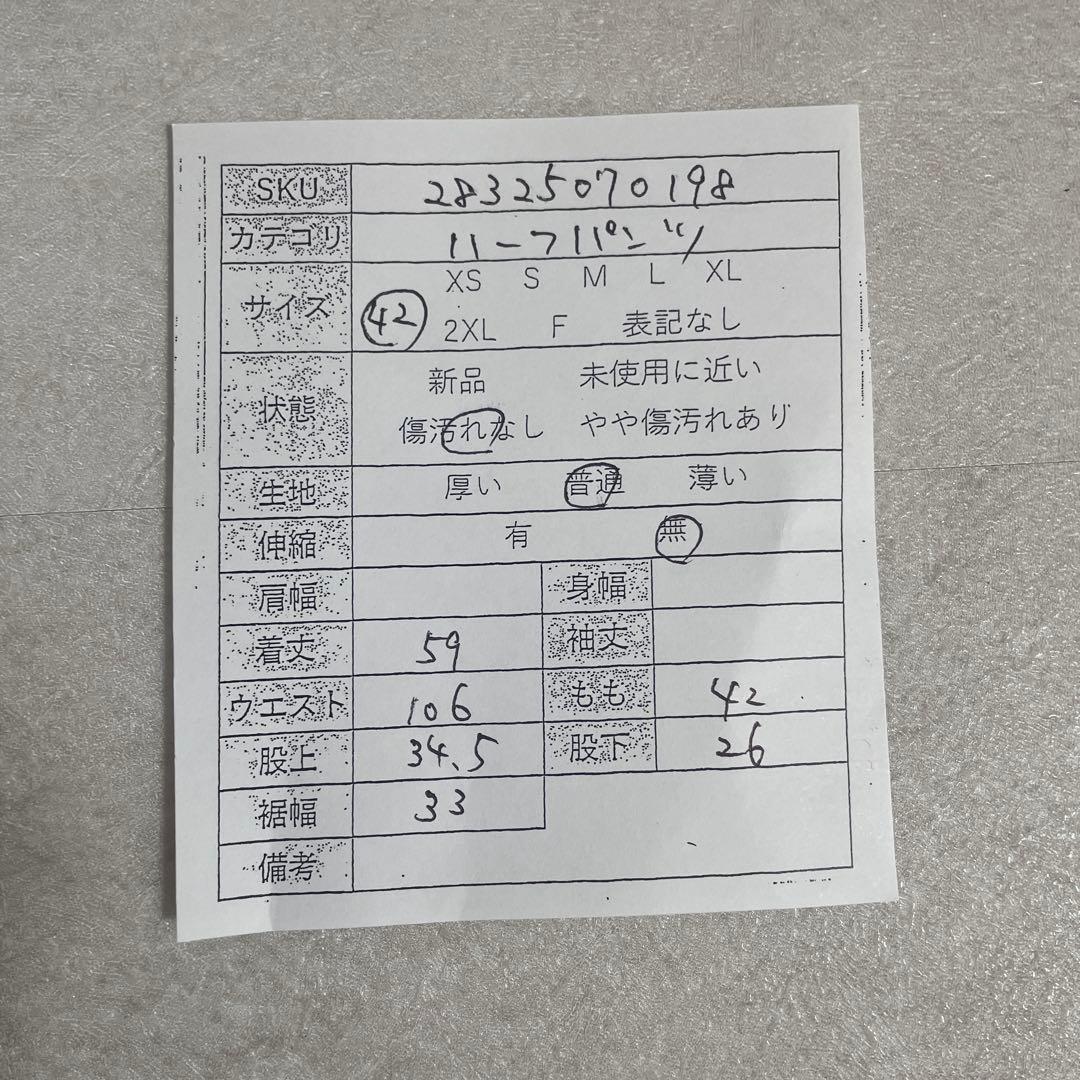 SKU 28325070198
カテゴリ ハーフパンツ
サイズ XS S M L XL
42 2XL F 表記なし
状態 新品 未使用に近い
傷汚れなし やや傷汚れあり
生地 厚い 普通 薄い
伸縮 有 無
肩幅 身幅
着丈 59 袖丈
ウエスト 106 もも 42
股上 34.5 股下 26
裾幅 33
備考